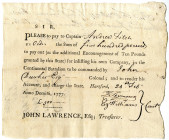 SIR,
PLEASE to pay to Captain Andrew Fitch
or Order, the Sum of five hundred pounds
to pay out as the additional Encouragement of Ten Pounds
granted by this State, for inlisting his own Company, in the
Continental Battalion to be commanded by John
Durkee Esq Colonel; and to render his
Account, and charge the State. Hartford,
Anno Domini, 1777.
£500
JOHN LAWRENCE, Esq; Treasurer.